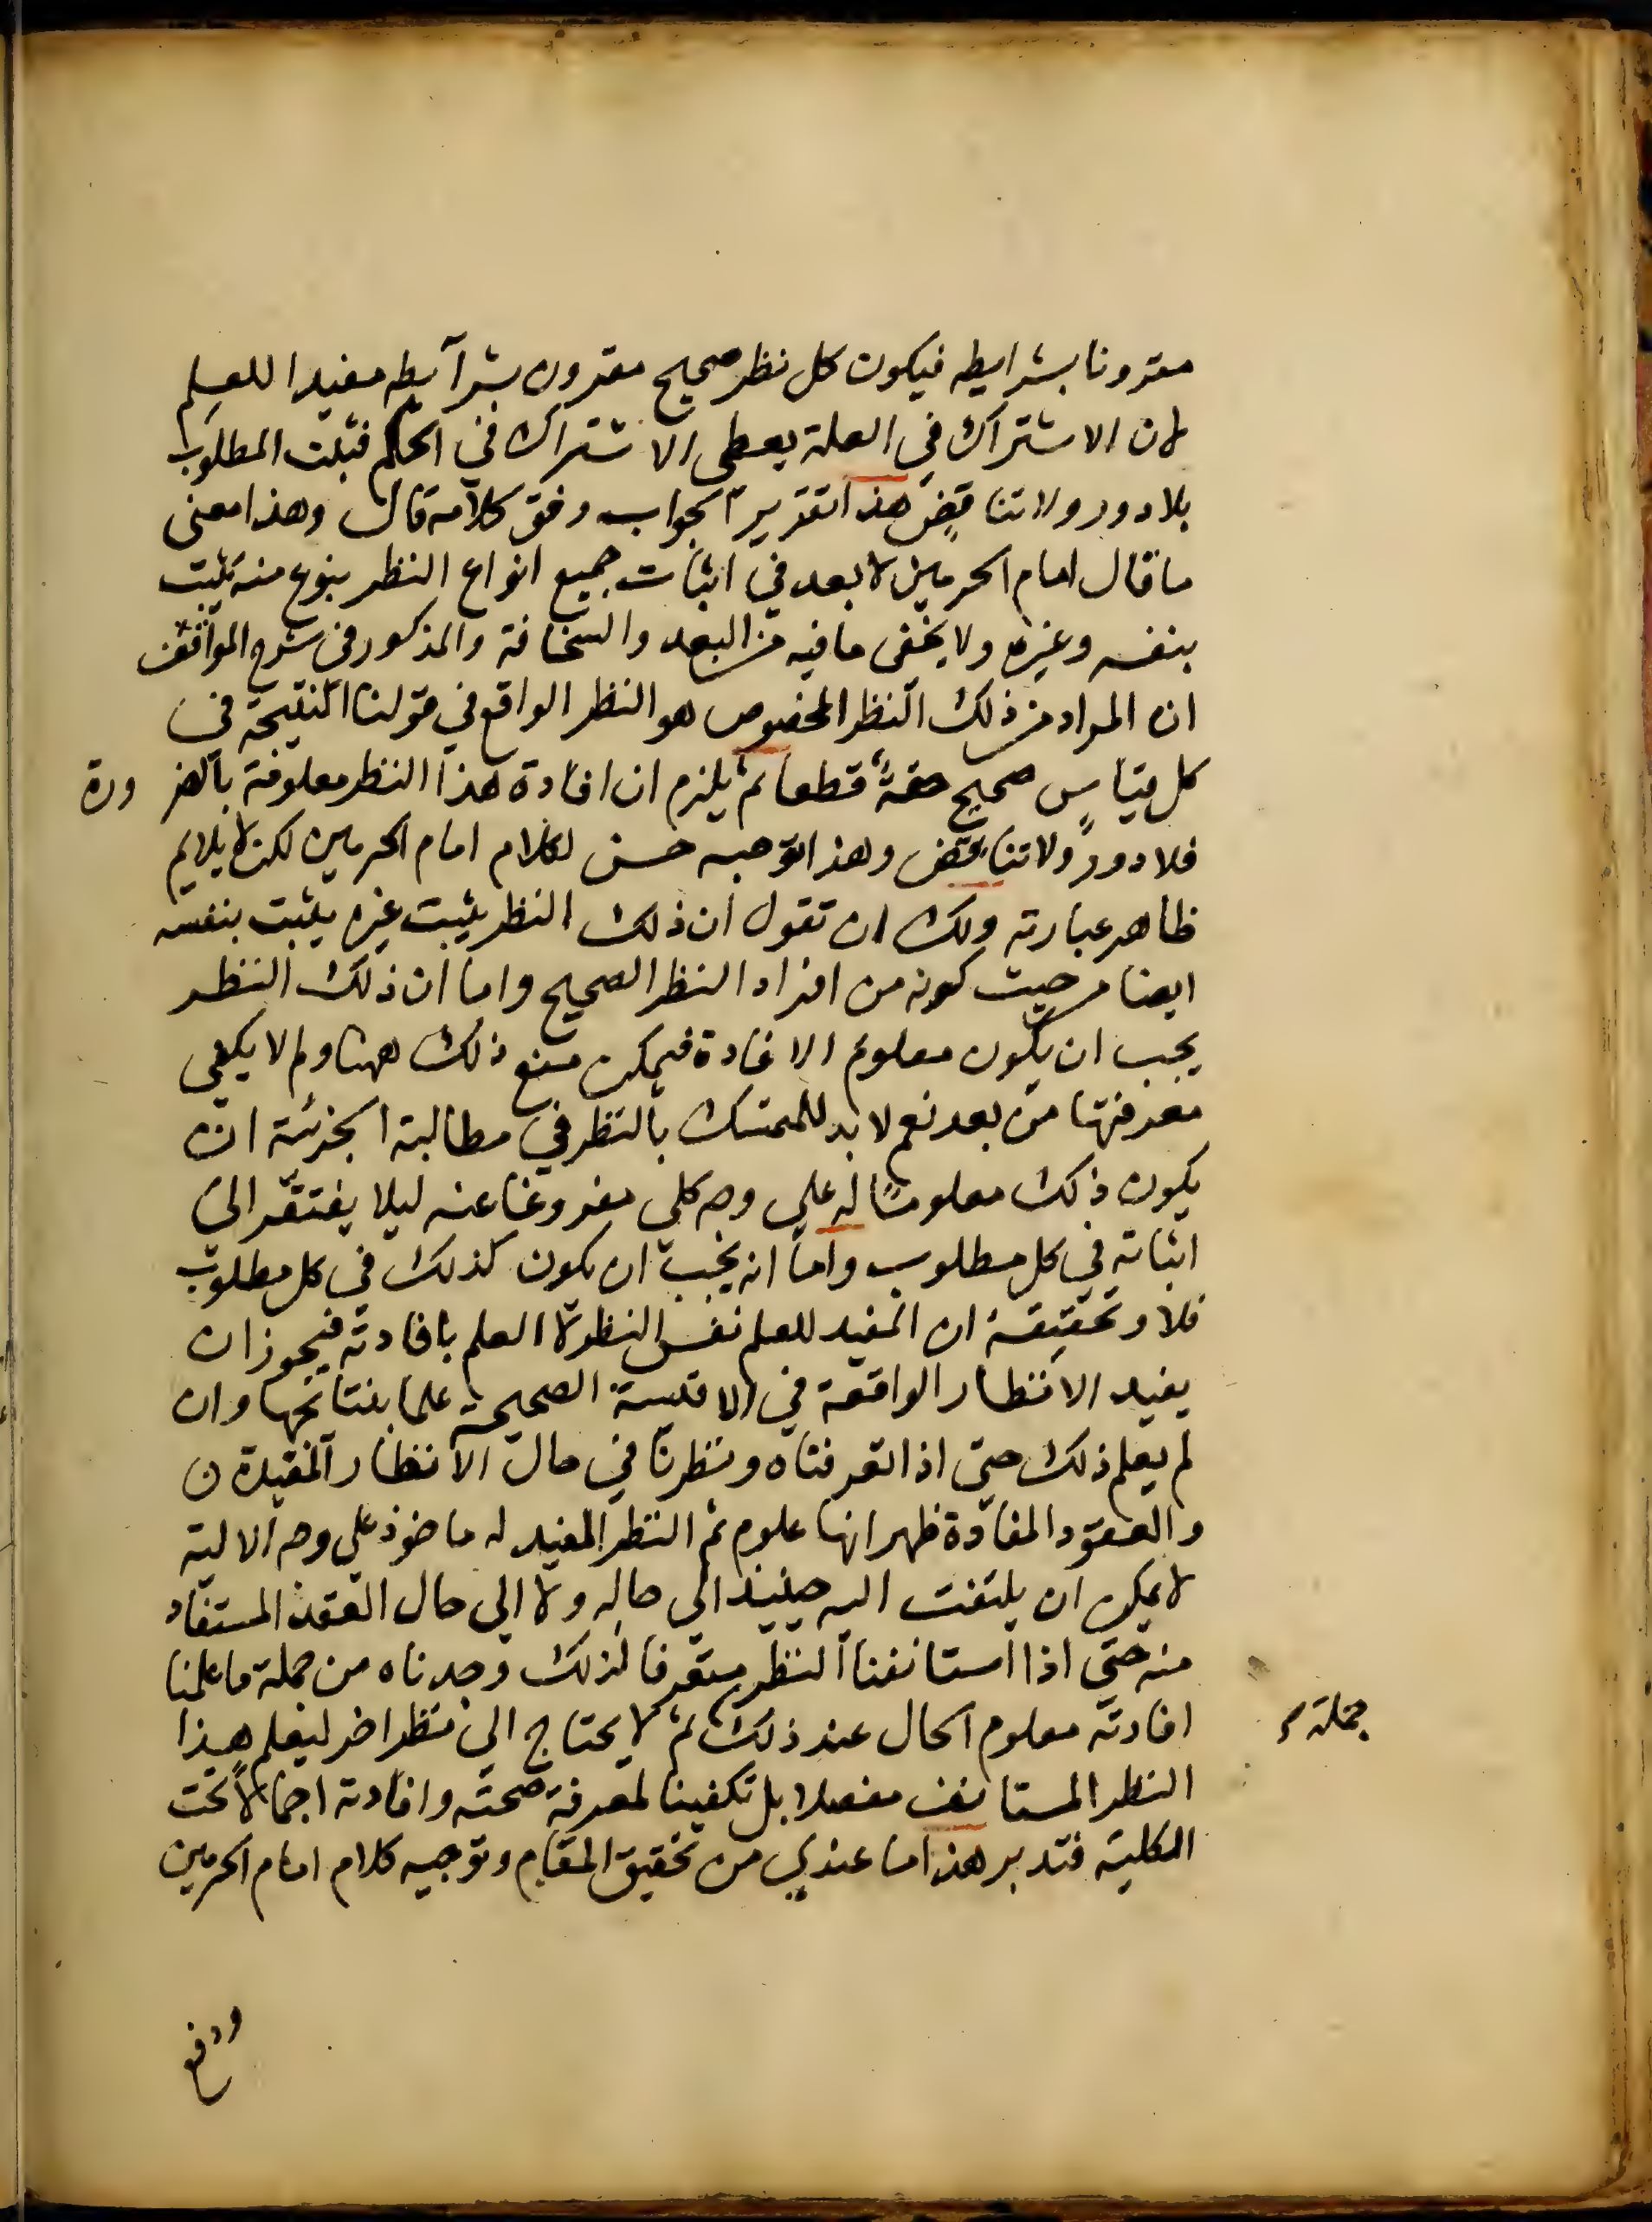 مقرونا بشرايطه فيكون كل نظر صحيح مقرون بشرآيطه مفيدا للعلم
لان الاشتراك في العلة يعطى الاشتراك في الحكم فثبت المطلوب
بلا دور ولا تناقض هذا تقرير الجواب وفق كلامه قال وهذا معنى
ما قال امام الحرمين لا بعد في اثبات جميع انواع النظر بنوع منه يثبت
بنفسه وغيره ولا يخفى ما فيه من البعد والسخافة والمذكور في شرح المواقف
ان المراد من ذلك النظر المخصوص هو النظر الواقع في قولنا النتيجة في
كل قياس صحيح حقة قطعا ثم يلزم ان افادة هذا النظر معلومة بالضرورة
فلا دور ولا تناقض وهذا توجيه حسن لكلام امام الحرمين لكن لا يلايم
ظاهر عبارته ولك ان تقول ان ذلك النظر يثبت غيره يثبت بنفسه
ايضا من حيث كونه من افراد النظر الصحيح واما ان ذلك النظر
يجب ان يكون معلوم الافادة فيمكن منع ذلك ههنا ولم لا يكفي
معرفتها من بعد نعم لا بد للمتمسك بالنظر في مطالبة الجزئية ان
يكون ذلك معلوما له على وجه كلي مفروغا عنه ليلا يفتقر الى
اثباته في كل مطلوب واما انه يجب ان يكون كذلك في كل مطلوب
فلا وتحقيقه ان المفيد للعلم نفس النظر لا العلم بافادته فيجوز ان
يفيد الانظار الواقعة في الاقيسة الصحيحة علما بنتائجها وان
لم يعلم ذلك حتى اذا تعرفناه ونظرنا في حال الانظار المفيدة ن
والعقود المفادة ظهر انها علوم ثم النظر المفيد له ماخوذ على وجه الالية
لا يمكن ان يلتفت اليه حينيذ الى حاله ولا الى حال العقد المستفاد
منه حتى اذا استانفنا النظر متعرفا لذلك وجدناه من جملة ما علمنا
افادته معلوم الحال عند ذلك ثم لا يحتاج الى نظر اخر ليعلم هذا
النظر المستانف مفصلا بل تكفينا لمعرفة صحته وافادته اجمالا تحت
الكلية فتدبر هذا ما عندي من تحقيق المقام وتوجيه كلام امام الحرمين
جملة
ودفع